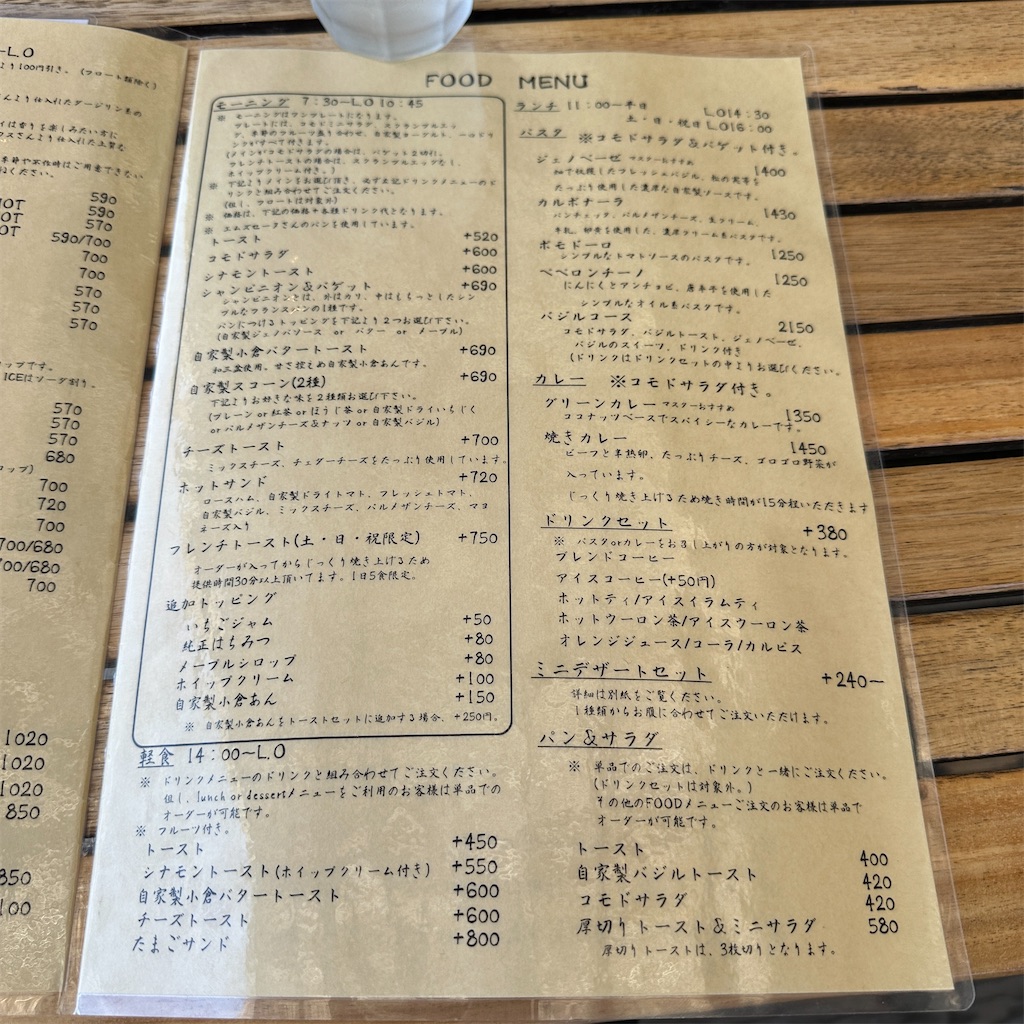 -L.O
より100円引き。(フロート類除く)
さんより仕入れたダージリン系の
590
590
570
590/700
700
700
570
570
570
ップです。
ICEはソーダ割り。
570
570
570
680
700
720
700
700/680
700/680
700
1020
1020
1020
850
850
100
FOOD MENU
モーニング 7:30〜L.O 10:45
※ モーニングはワンプレートになります。
プレートには、コモドミニサラダ、スクランブルエッ
グ、季節のフルーツ盛り合わせ、自家製ヨーグルト、一口ドリ
ンクがすべて付きます。
(メインがコモドサラダの場合は、バゲット2切れ。
フレンチトーストの場合は、スクランブルエッグなし。
ホイップクリーム付き。)
※ 下記よりメインをお選び頂き、必ず左記ドリンクメニューのド
リンクと組み合わせてご注文ください。
(但し、フロートは対象外)
※ 価格は、下記の価格+各種ドリンク代となります。
※ エムズセークさんのパンを使用しています。
トースト +520
コモドサラダ +600
シナモントースト +600
シャンピニオン&バゲット +690
シャンピニオンとは、外はカリ、中はもちっとしたシン
プルなフランスパンの1種です。
パンにつけるトッピングを下記より2つお選び下さい。
(自家製ジェノバソース or バター or メープル)
自家製小倉バタートースト +690
和三盆使用。甘さ控えめ自家製小倉あんです。
自家製スコーン(2種) +690
下記よりお好きな味を2種類お選び下さい。
(プレーン or 紅茶 or ほうじ茶 or 自家製ドライいちじく
or パルメザンチーズ&ナッツ or 自家製バジル)
チーズトースト +700
ミックスチーズ、チェダーチーズをたっぷり使用しています。
ホットサンド +720
ロースハム、自家製ドライトマト、フレッシュトマト、
自家製バジル、ミックスチーズ、パルメザンチーズ、マヨ
ネーズ入り
フレンチトースト(土・日・祝限定) +750
オーダーが入ってからじっくり焼き上げるため
提供時間30分以上頂いてます。1日5食限定。
追加トッピング
いちごジャム +50
純正はちみつ +80
メープルシロップ +80
ホイップクリーム +100
自家製小倉あん +150
※ 自家製小倉あんをトーストセットに追加する場合、+250円。
軽食 14:00〜L.O
※ ドリンクメニューのドリンクと組み合わせてご注文ください。
但し、lunch or dessertメニューをご利用のお客様は単品での
オーダーが可能です。
※ フルーツ付き。
トースト +450
シナモントースト(ホイップクリーム付き) +550
自家製小倉バタートースト +600
チーズトースト +600
たまごサンド +800
ランチ 11:00〜平日 L.O14:30
土・日・祝日 L.O16:00
パスタ ※コモドサラダ&バゲット付き。
ジェノベーゼ マスターおすすめ 1400
畑で収穫したフレッシュバジル、松の実等を
たっぷり使用した濃厚な自家製ソースです。
カルボナーラ 1430
パンチェッタ、パルメザンチーズ、生クリーム、
牛乳、卵黄を使用した、濃厚クリーム系パスタです。
ポモドーロ 1250
シンプルなトマトソースのパスタです。
ペペロンチーノ 1250
にんにくとアンチョビ、唐辛子を使用した
シンプルなオイル系パスタです。
バジルコース 2150
コモドサラダ、バジルトースト、ジェノベーゼ、
バジルのスイーツ、ドリンク付き
(ドリンクはドリンクセットの中よりお選びください。
カレー ※コモドサラダ付き。
グリーンカレー マスターおすすめ 1350
ココナッツベースでスパイシーなカレーです。
焼きカレー 1450
ビーフと半熟卵、たっぷりチーズ、ゴロゴロ野菜が
入っています。
じっくり焼き上げるため焼き時間が15分程いただきます
ドリンクセット +380
※ パスタorカレーをお召し上がりの方が対象となります。
ブレンドコーヒー
アイスコーヒー(+50円)
ホットティ/アイスイラムティ
ホットウーロン茶/アイスウーロン茶
オレンジジュース/コーラ/カルピス
ミニデザートセット +240〜
詳細は別紙をご覧ください。
1種類からお腹に合わせてご注文いただけます。
パン&サラダ
※ 単品でのご注文は、ドリンクと一緒にご注文ください。
(ドリンクセットは対象外。)
その他のFOODメニューご注文のお客様は単品で
オーダーが可能です。
トースト 400
自家製バジルトースト 420
コモドサラダ 420
厚切りトースト&ミニサラダ 580
厚切りトーストは、3枚切りとなります。